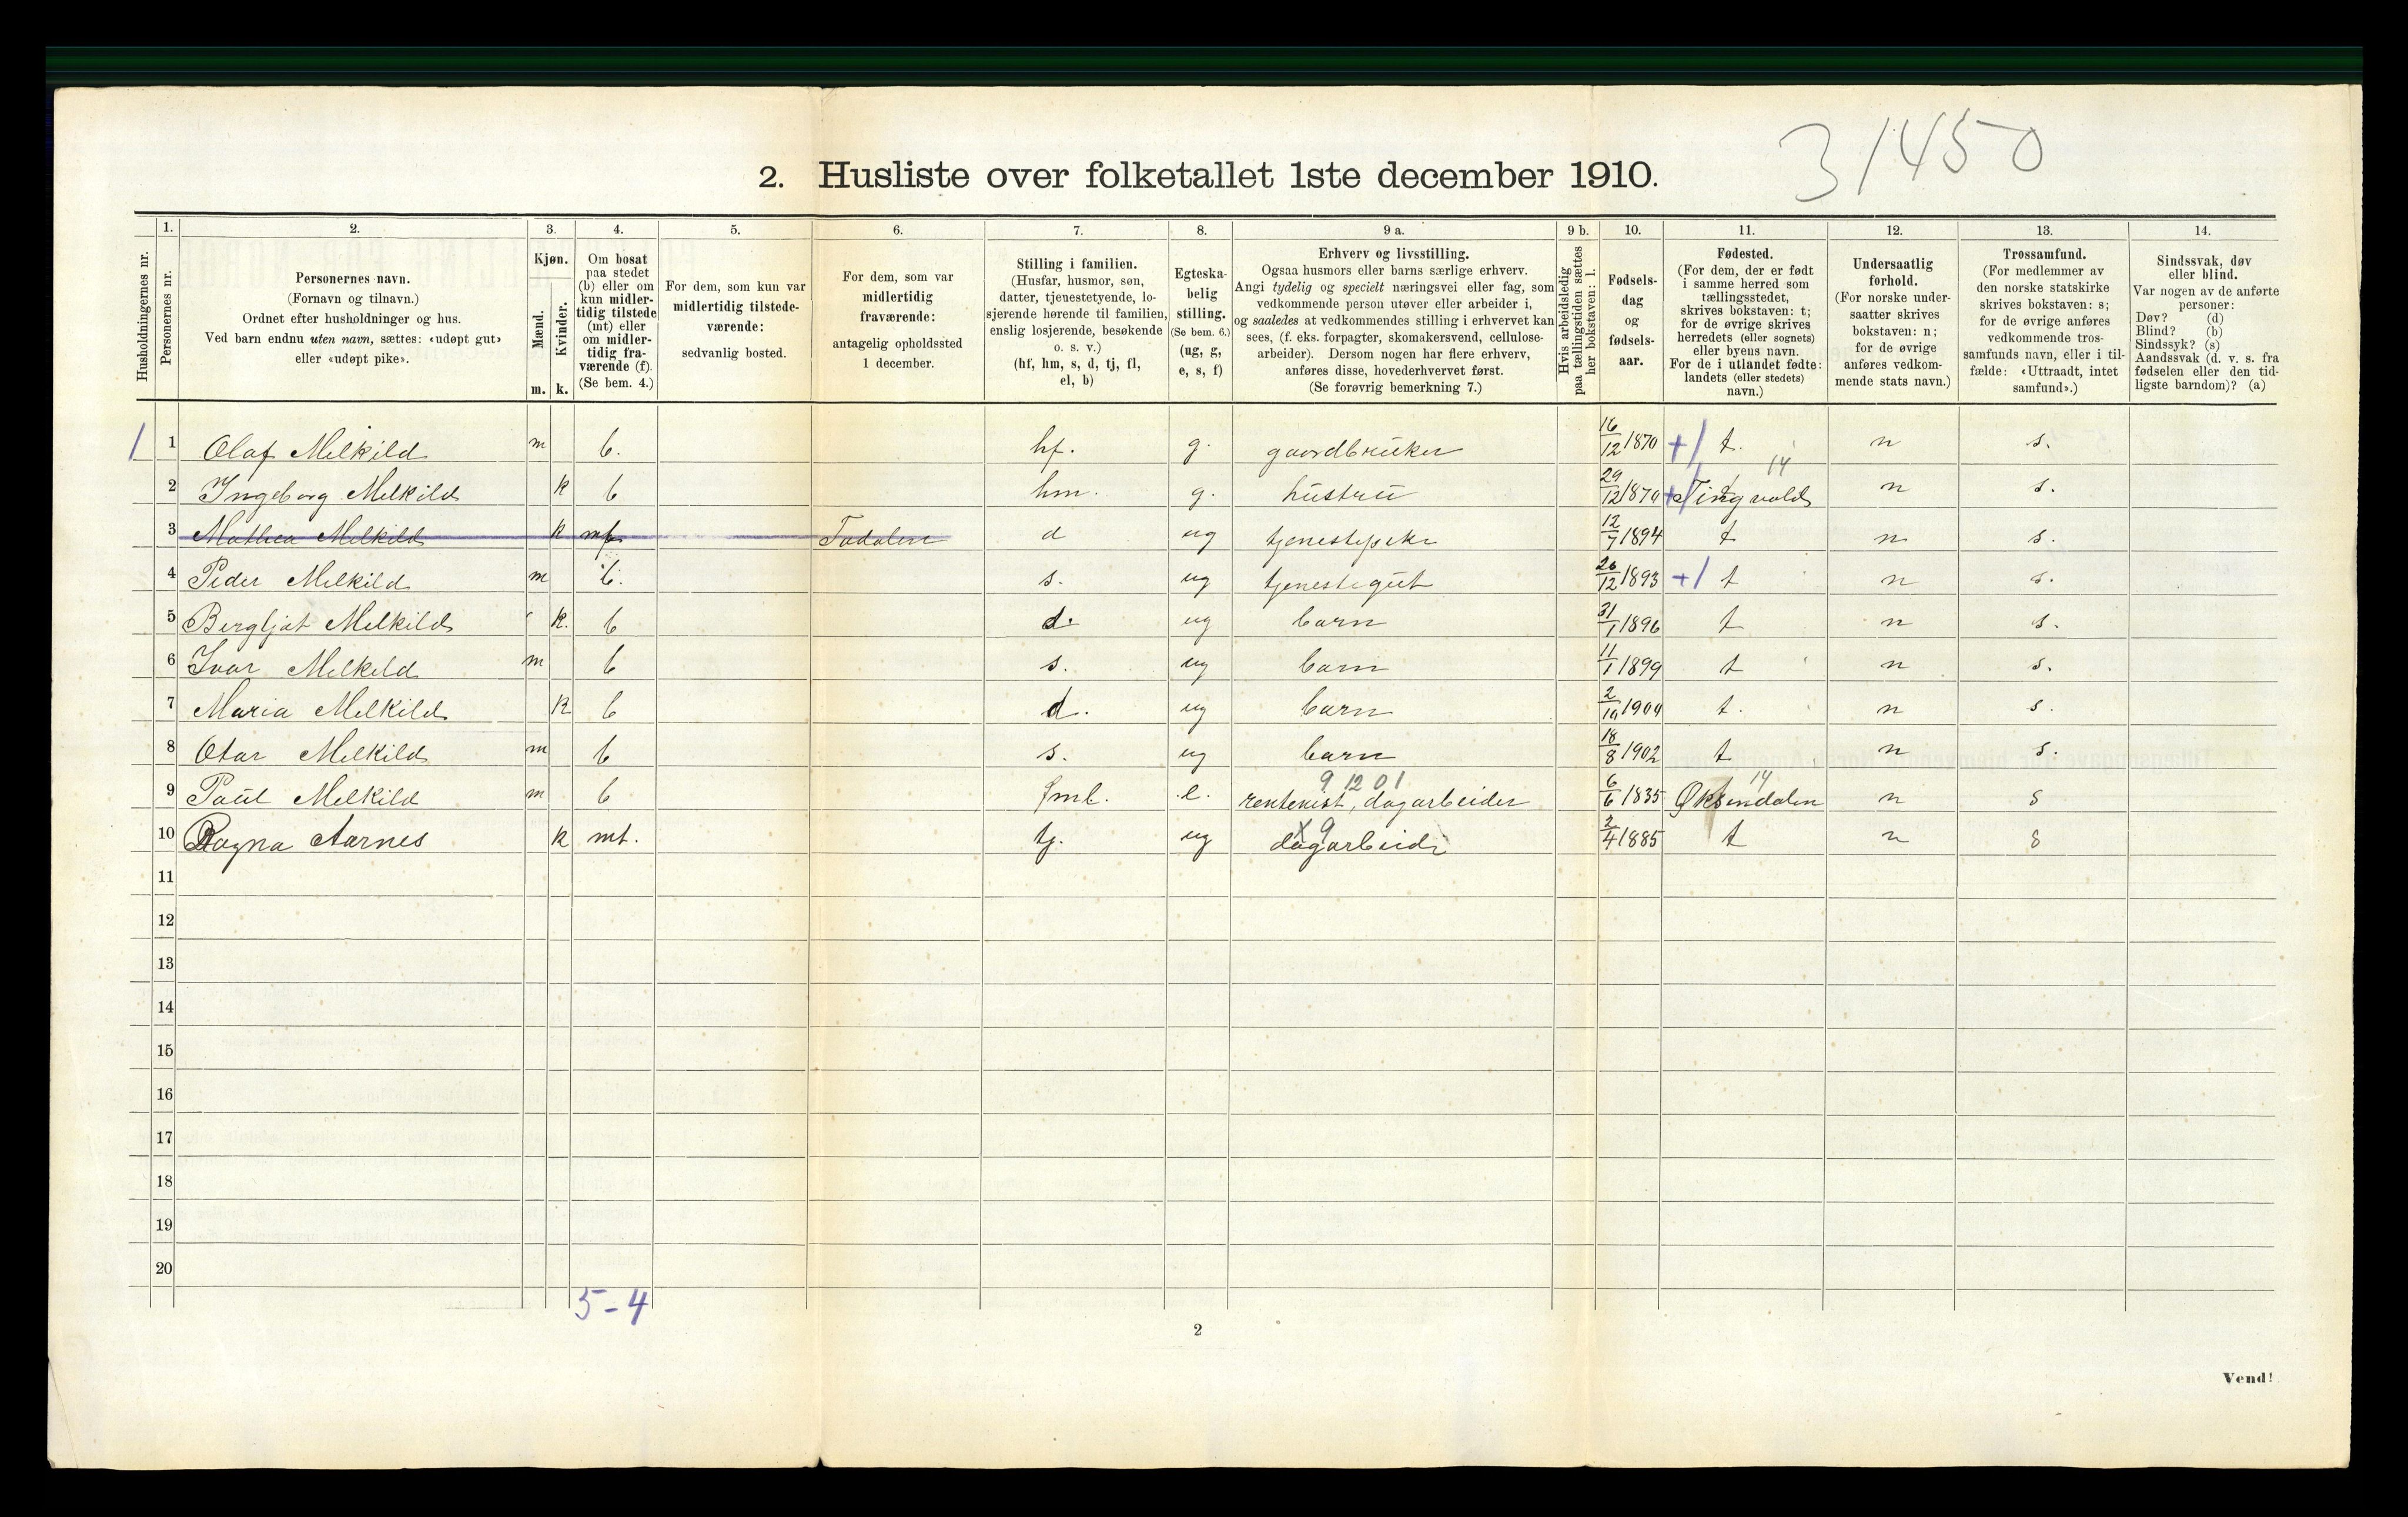 31450
2. Husliste over folketallet 1ste december 1910.
Husholdningernes nr.
1.
Personernes nr.
2.
Personernes navn.
(Fornavn og tilnavn.)
Ordnet efter husholdninger og hus.
Ved barn endnu uten navn, sættes: «udøpt gut»
eller «udøpt pike».
3.
Kjøn.
Mænd.
Kvinder.
m. k.
4.
Om bosat
paa stedet
(b) eller om
kun midler-
tidig tilstede
(mt) eller
om midler-
tidig fra-
værende (f).
(Se bem. 4.)
5.
For dem, som kun var
midlertidig tilstede-
værende:
sedvanlig bosted.
6.
For dem, som var
midlertidig
fraværende:
antagelig opholdssted
1 december.
7.
Stilling i familien.
(Husfar, husmor, søn,
datter, tjenestetyende, lo-
sjerende hørende til familien,
enslig losjerende, besøkende
o. s. v.)
(hf, hm, s, d, tj, fl,
el, b)
8.
Egteska-
belig
stilling.
(Se bem. 6.)
(ug, g,
e, s, f)
9 a.
Erhverv og livsstilling.
Ogsaa husmors eller barns særlige erhverv.
Angi tydelig og specielt næringsvei eller fag, som
vedkommende person utøver eller arbeider i,
og saaledes at vedkommendes stilling i erhvervet kan
sees, (f. eks. forpagter, skomakersvend, cellulose-
arbeider). Dersom nogen har flere erhverv,
anføres disse, hovederhvervet først.
(Se forøvrig bemerkning 7.)
9 b.
Hvis arbeidsledig
paa tællingstiden sættes
her bokstaven: l.
10.
Fødsels-
dag
og
fødsels-
aar.
11.
Fødested.
(For dem, der er født
i samme herred som
tællingsstedet,
skrives bokstaven: t;
for de øvrige skrives
herredets (eller sognets)
eller byens navn.
For de i utlandet fødte:
landets (eller stedets)
navn.)
12.
Undersaatlig
forhold.
(For norske under-
saatter skrives
bokstaven: n;
for de øvrige
anføres vedkom-
mende stats navn.)
13.
Trossamfund.
(For medlemmer av
den norske statskirke
skrives bokstaven: s;
for de øvrige anføres
vedkommende tros-
samfunds navn, eller i til-
fælde: «Uttraadt, intet
samfund».)
14.
Sindssvak, døv
eller blind.
Var nogen av de anførte
personer:
Døv? (d)
Blind? (b)
Sindssyk? (s)
Aandssvak (d. v. s. fra
fødselen eller den tid-
ligste barndom)? (a)
1 1 Olaf Melkild m b. hf. g. gaardbruker 16/12 1870 +1 t. n s.
14
2 Ingeborg Melkild k b hm. g. hustru 29/12 1870 +1 Tingvold n s.
3 Mathea Melkild k Todalen d ug tjenestepike 12/7 1894 t n s.
4 Peder Melkild m b. s. ug tjenestegut 26/12 1893 +1 t n s.
5 Bergljot Melkild k. b d. ug barn 31/1 1896 t n s.
6 Ivar Melkild m b s. ug barn 11/1 1899 t n s.
7 Maria Melkild k b d. ug barn 2/10 1904 t. n s.
8 Otar Melkild m b s. ug barn 18/8 1902 t n s.
9 12 01 14
9 Paul Melkild m b fml. e. rentenist, dagarbeider 6/6 1835 Øksendalen n s
x 9
10 Ragna Aarnes k mt. tj. ug dagarbeide 2/4 1885 t n s
11
12
13
14
15
16
17
18
19
20
5-4
2
Vend!